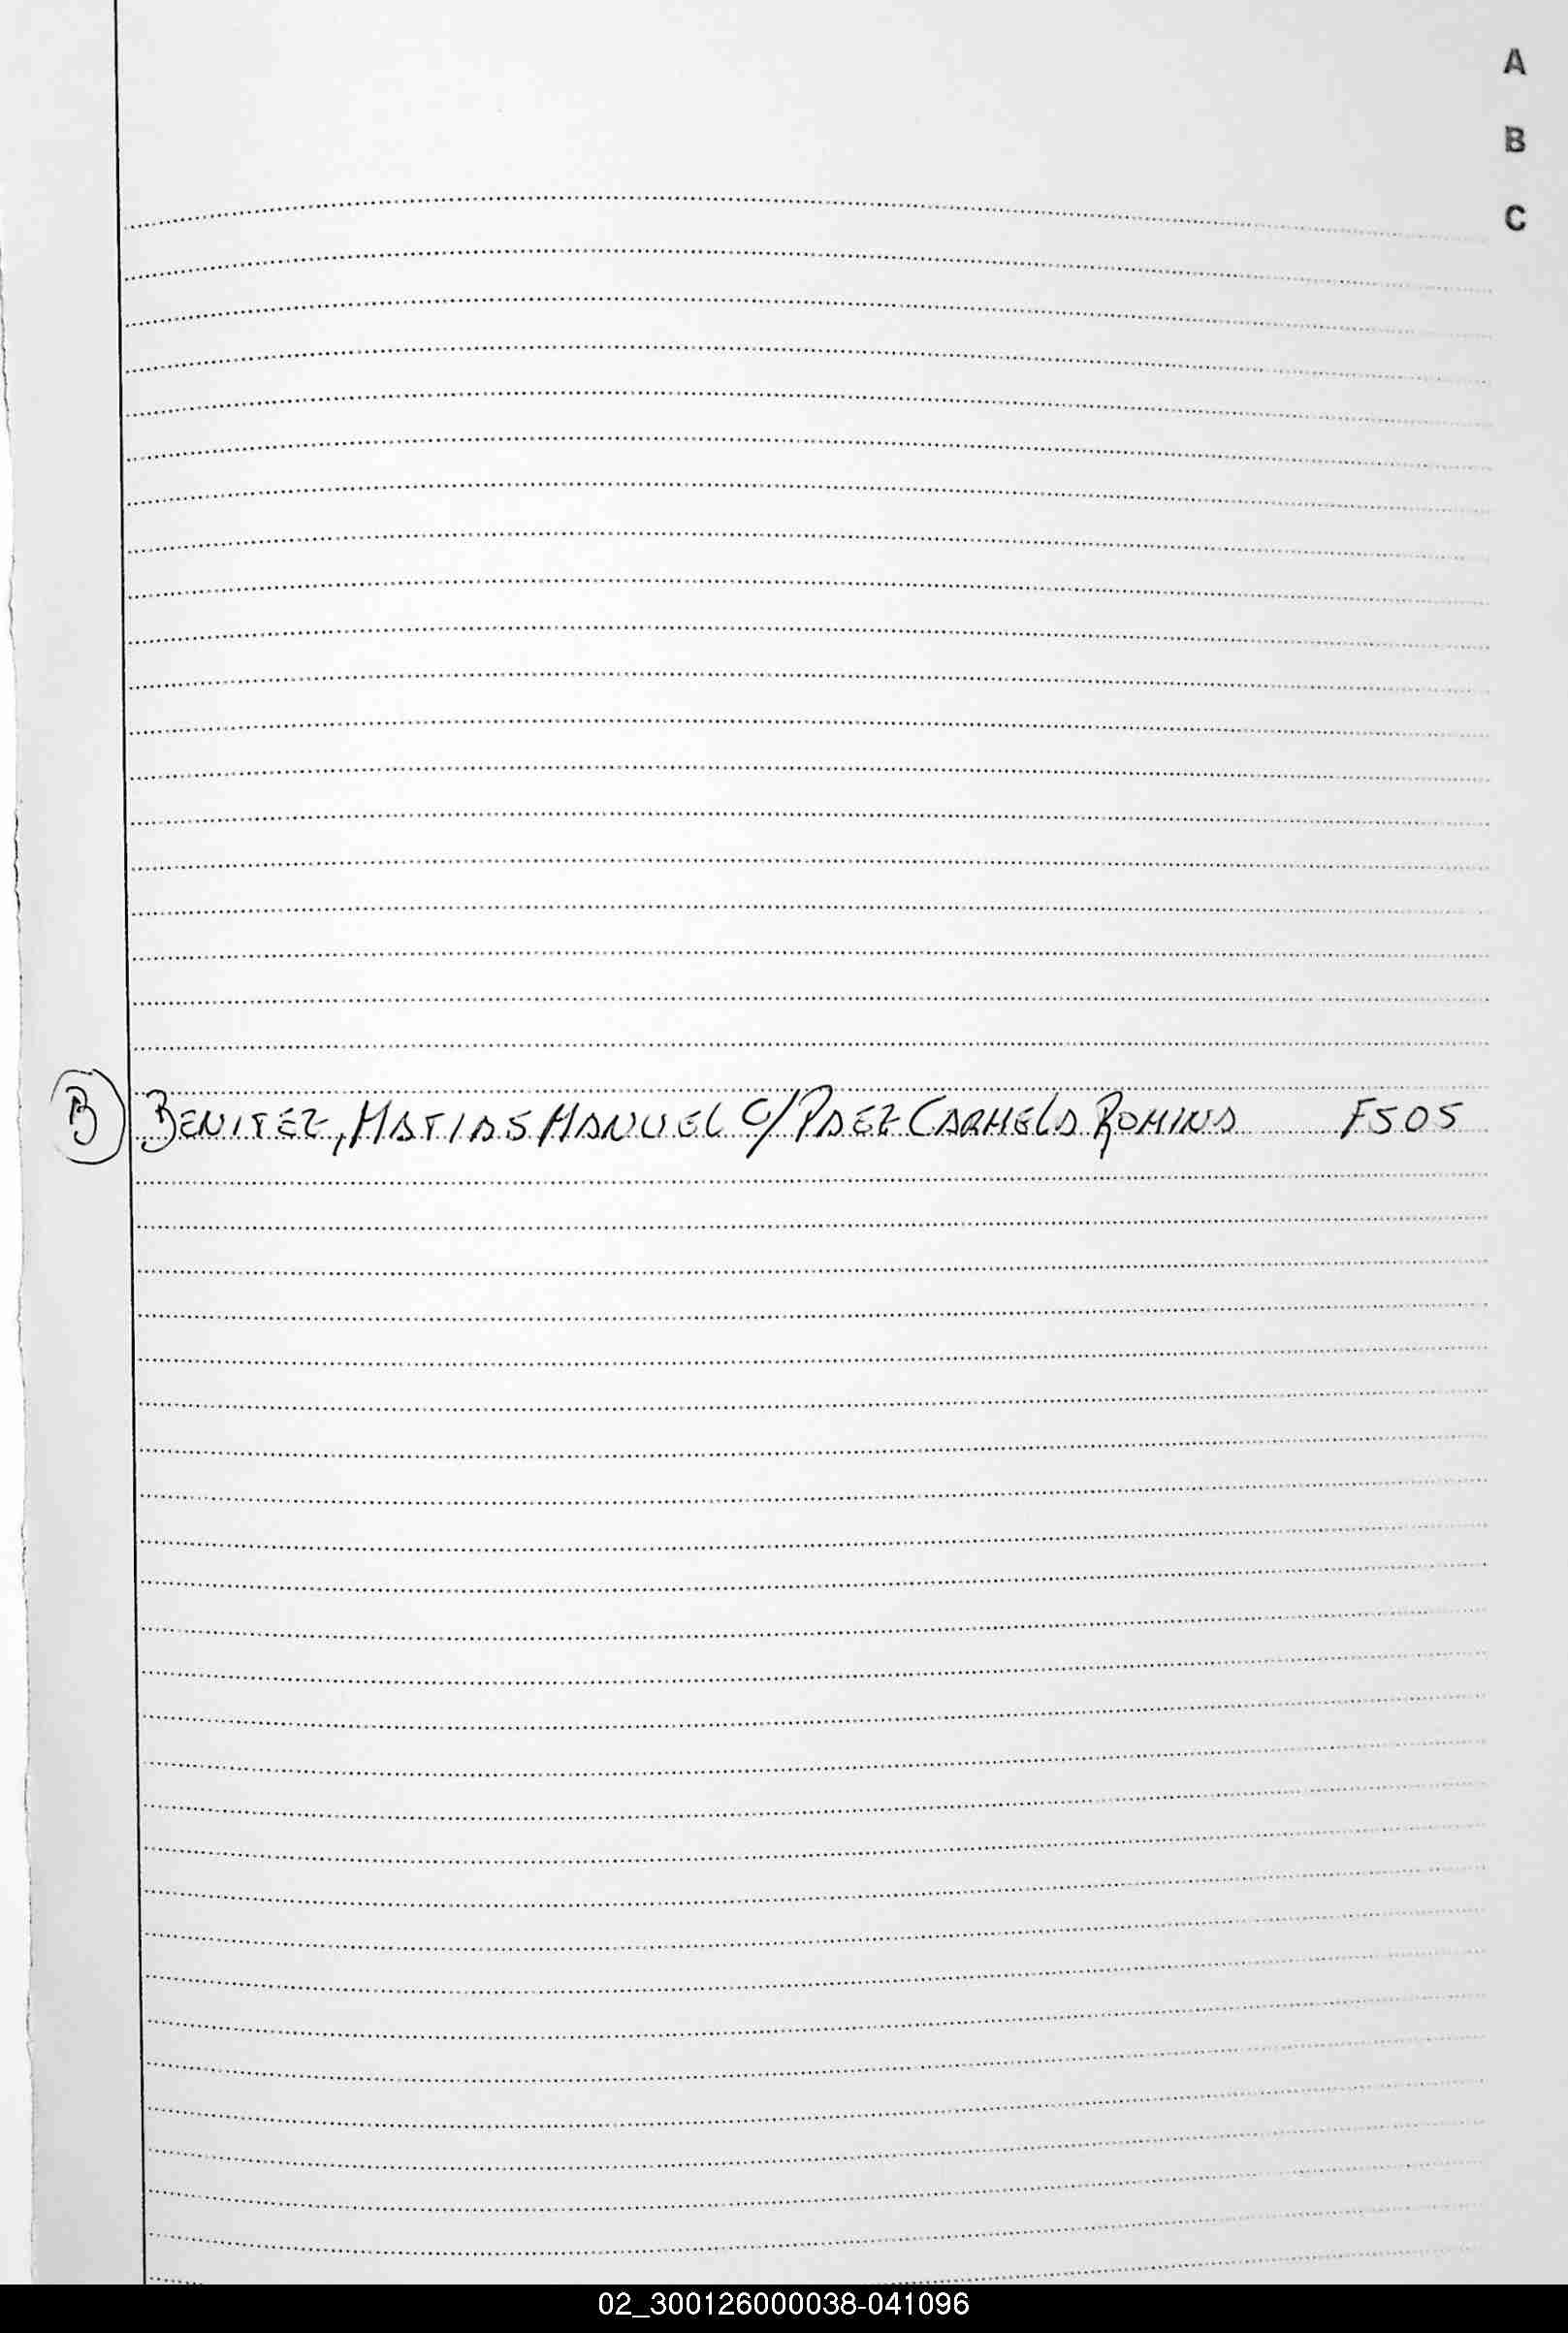 A
B
C
B BENITEZ, MATIAS MANUEL C/ PAEZ CARMELA ROMINA F505
02_300126000038-041096